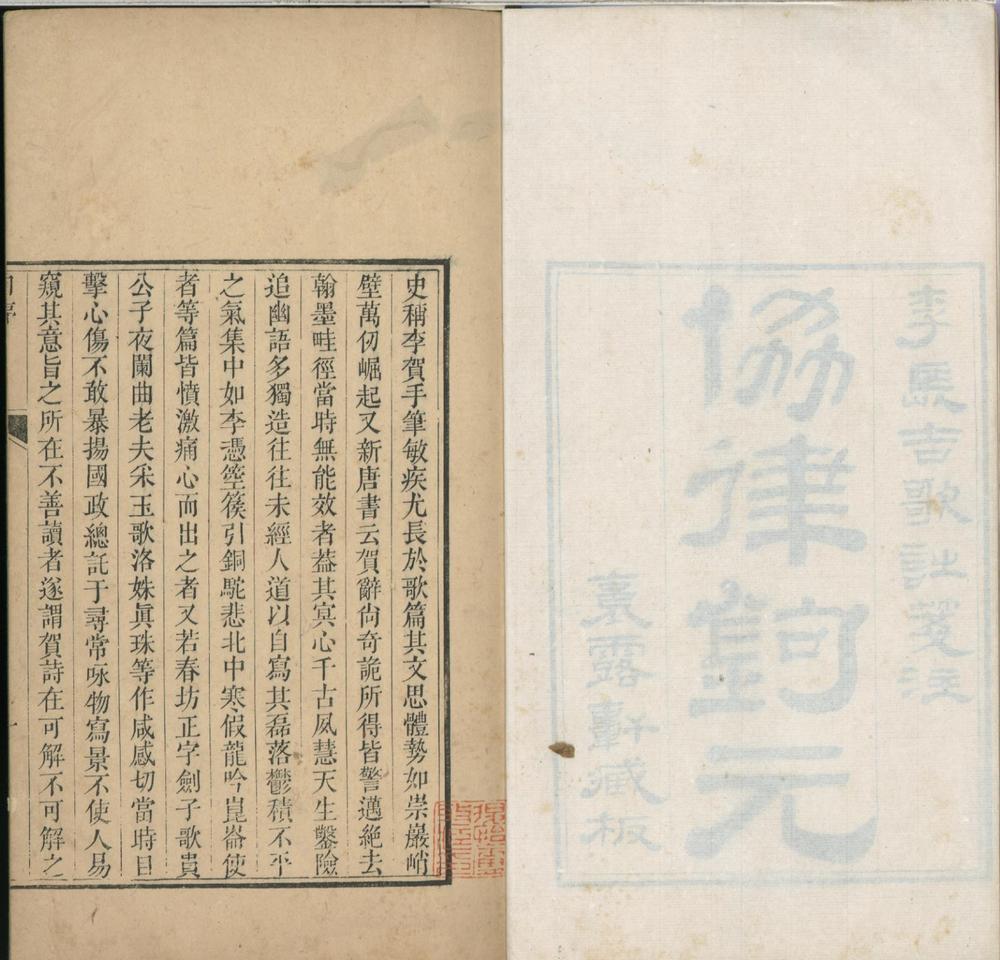 李長吉歌詩箋注
協律鉤元
裛露軒藏板
史稱李賀手筆敏疾尤長於歌篇其文思體勢如崇巖峭
壁萬仞崛起又新唐書云賀辭尙奇詭所得皆警邁絶去
翰墨畦徑當時無能效者葢其㝠心千古夙慧天生鑿險
追幽語多獨造往往未經人道以自寫其磊落鬱積不平
之氣集中如李憑箜篌引銅駝悲北中寒假龍吟崑崙使
者等篇皆憤激痛心而出之者又若春坊正字劍子歌貴
公子夜闌曲老夫采玉歌洛姝眞珠等作咸感切當時目
擊心傷不敢暴揚國政總託于尋常咏物寫景不使人易
窺其意旨之所在不善讀者遂謂賀詩在可解不可解之